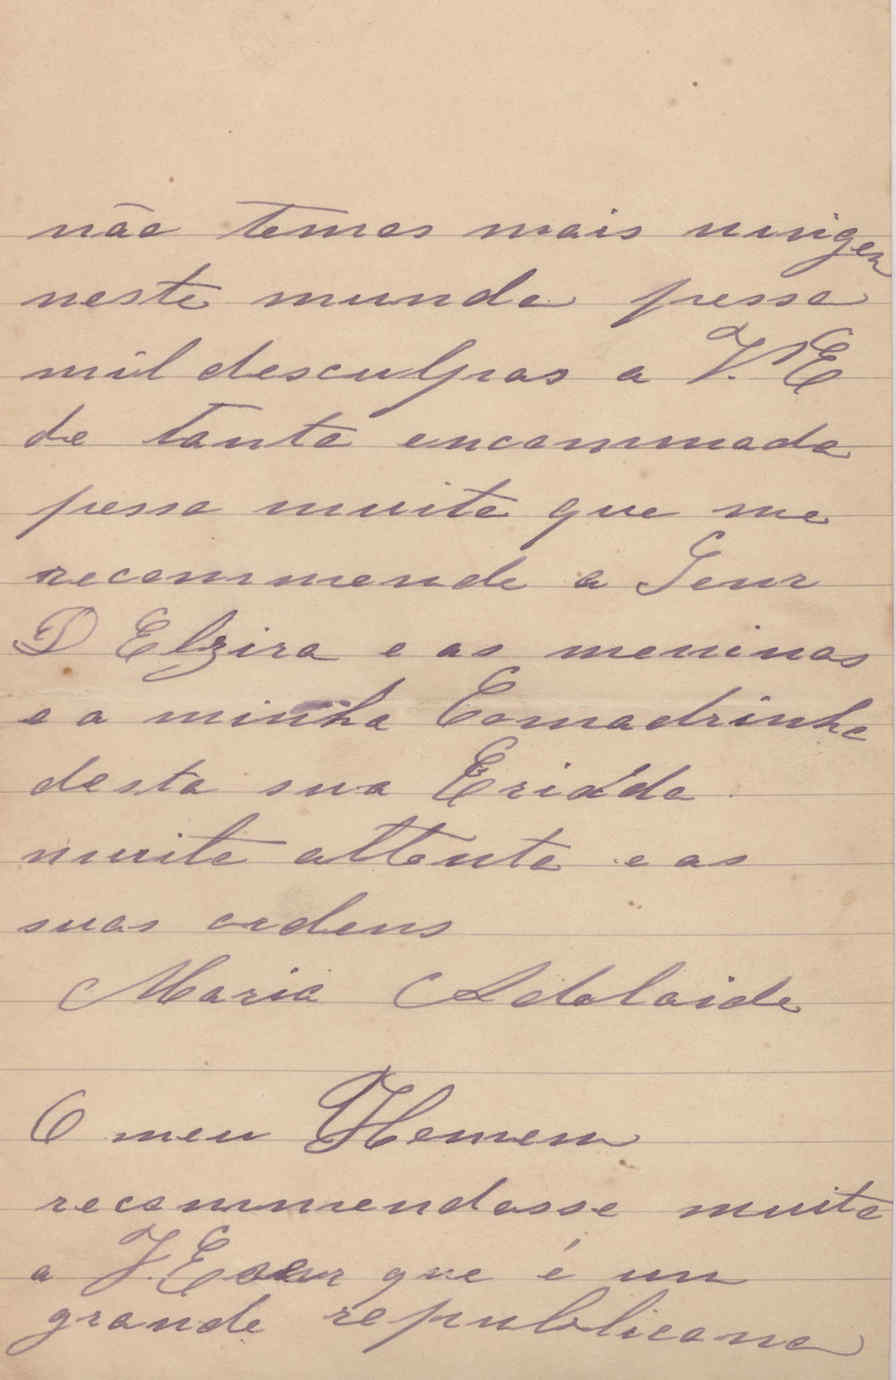 não temos mais ningen
neste mundo pesso
mil desculpas a V. E
de tanto encommodo
pesso muito que me
recommende a Senr
D Elzira e as meninas
e a minha Comadrinha
desta sua Criáda
muito attenta e as
suas ordens
Maria Adelaide
O meu Homem
recommendasse muito
a V. E que é un
grande republicano